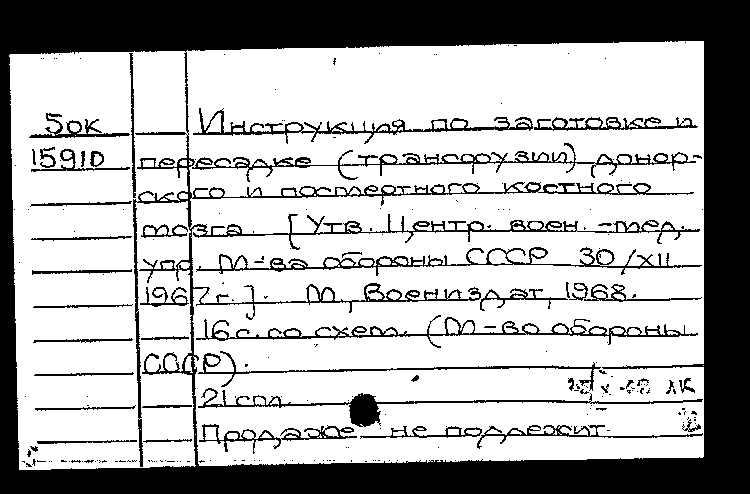 5ок Инструкция по заготовке и
15910 пересадке (трансфузии) донор-
ского и посмертного костного
мозга. [Утв. Центр. воен.-мед.
упр. М-ва обороны СССР 30/XII
1967 г.]. М., Воениздат, 1968.
16 с. со схем. (М-во обороны
СССР).
21 см.
Продаже не подлежит.